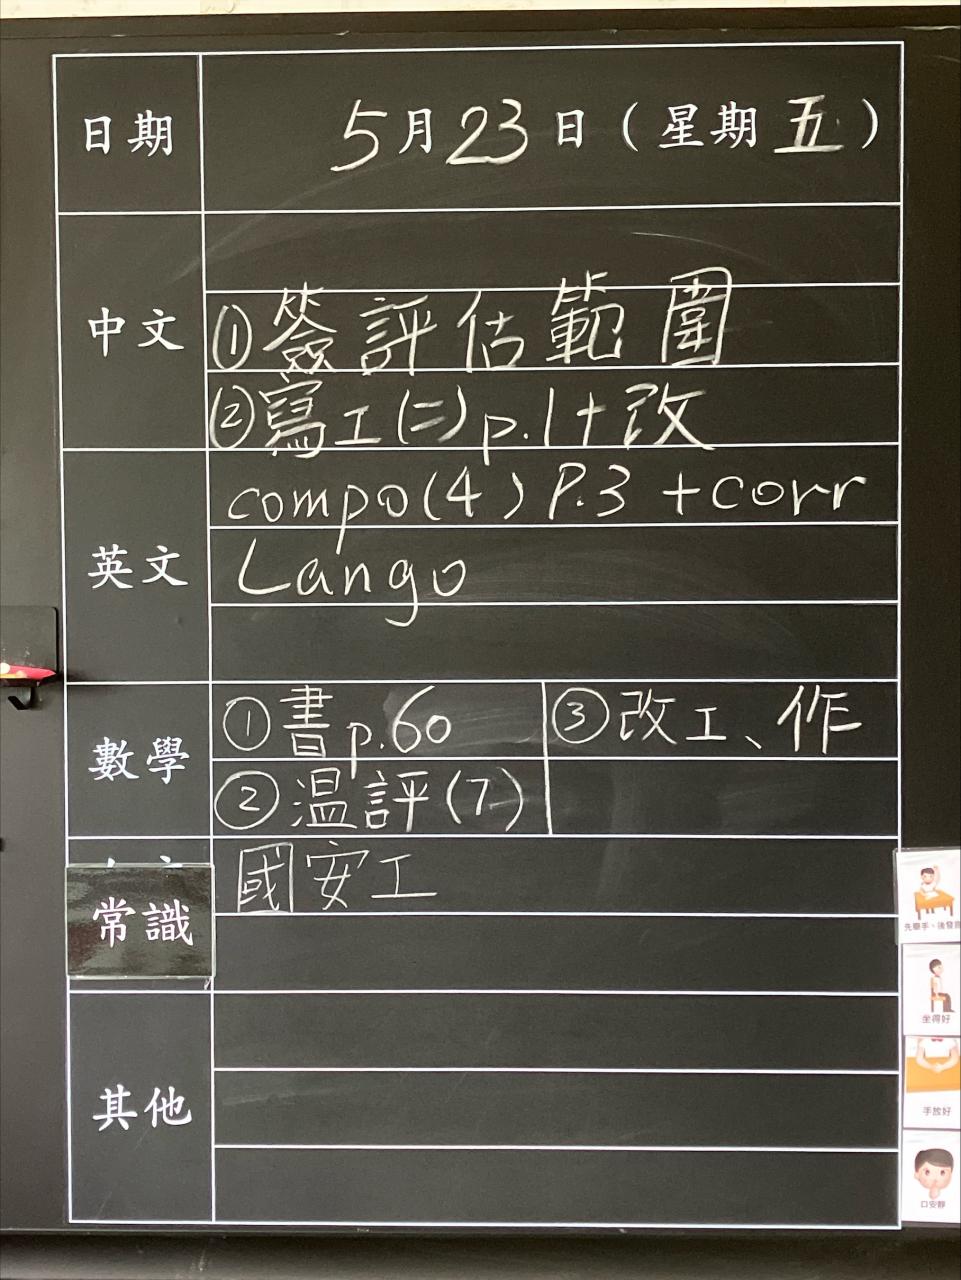 日期 5月23日(星期五)
中文
①簽評估範圍
②寫工(二)p.1+改
英文
compo(4) P.3 +corr
Lango
數學
①書p.60
②温評(7)
③改工、作
常識
國安工
其他
先舉手、後發言
坐得好
手放好
口安靜